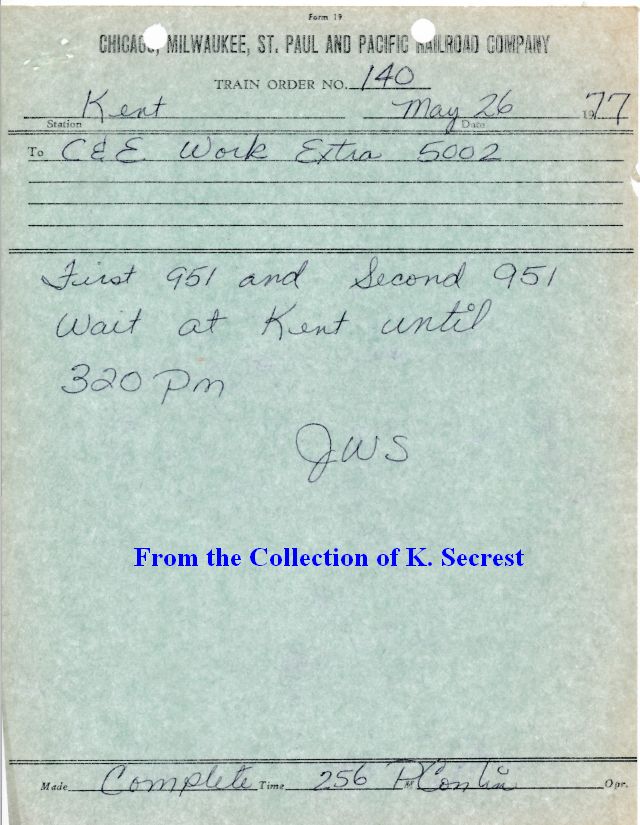 Form 19
CHICAGO, MILWAUKEE, ST. PAUL AND PACIFIC RAILROAD COMPANY
TRAIN ORDER NO. 140
Kent May 26 1977
Station Date
To C & E Work Extra 5002
First 951 and Second 951
Wait at Kent until
320 Pm
JWS
From the Collection of K. Secrest
Made Complete Time 256 P M Conlin Opr.